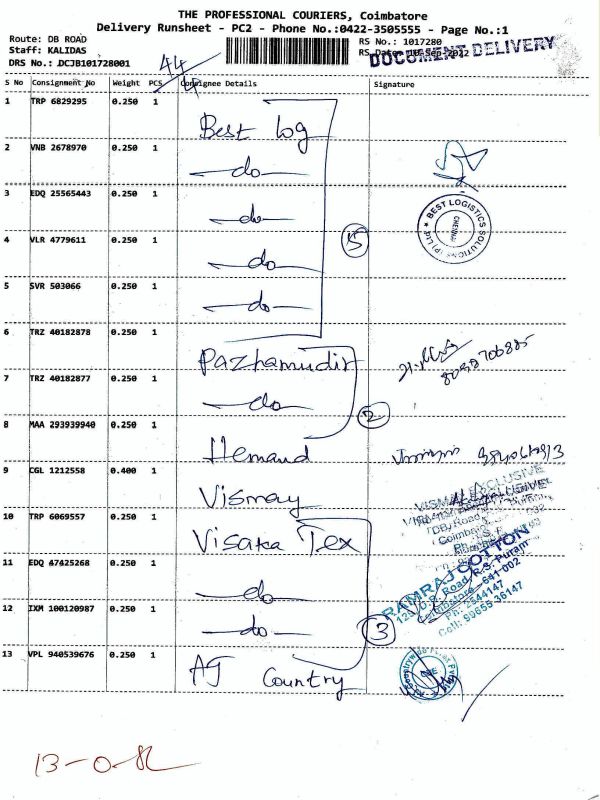 THE PROFESSIONAL COURIERS, Coimbatore
Delivery Runsheet - PC2 - Phone No.:0422-3505555 - Page No.:1
Route: DB ROAD
RS No.: 1017280
Staff: KALIDAS
RS Date: 10-Sep-2022
DOCUMENT DELIVERY
DRS No.: DCJB101728001
44
S No Consignment No Weight PCS Consignee Details Signature
1 TRP 6829295 0.250 1 Best Log
2 VNB 2678970 0.250 1 -do-
3 EDQ 25565443 0.250 1 -do-
BEST LOGISTICS SOLUTIONS (P) Ltd
CHENNAI
4 VLR 4779611 0.250 1 -do-
5
5 SVR 503066 0.250 1 -do-
6 TRZ 40182878 0.250 1 Pazhamudir
7 TRZ 40182877 0.250 1 -do-
2
8 MAA 293939940 0.250 1 Hemand
9 CGL 1212558 0.400 1 Vismay
VISMAY EXCLUSIVE
10 TRP 6069557 0.250 1 Visaka Tex
11 EDQ 47425268 0.250 1 -do-
RAMRAJ COTTON
D.B. Road, R.S. Puram
Coimbatore - 641-002
Ph: 2544147
Cell: 99655-36147
12 IXM 100120987 0.250 1 -do-
3
13 VPL 940539676 0.250 1 AJ Country
13-0-82